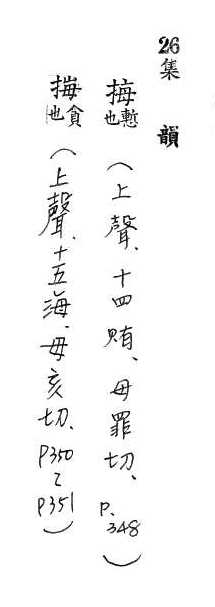 26集 韻
挴慙也（上聲、十四賄、母罪切、P.348）
挴貪也（上聲、十五海、母亥切、P350〜P351）